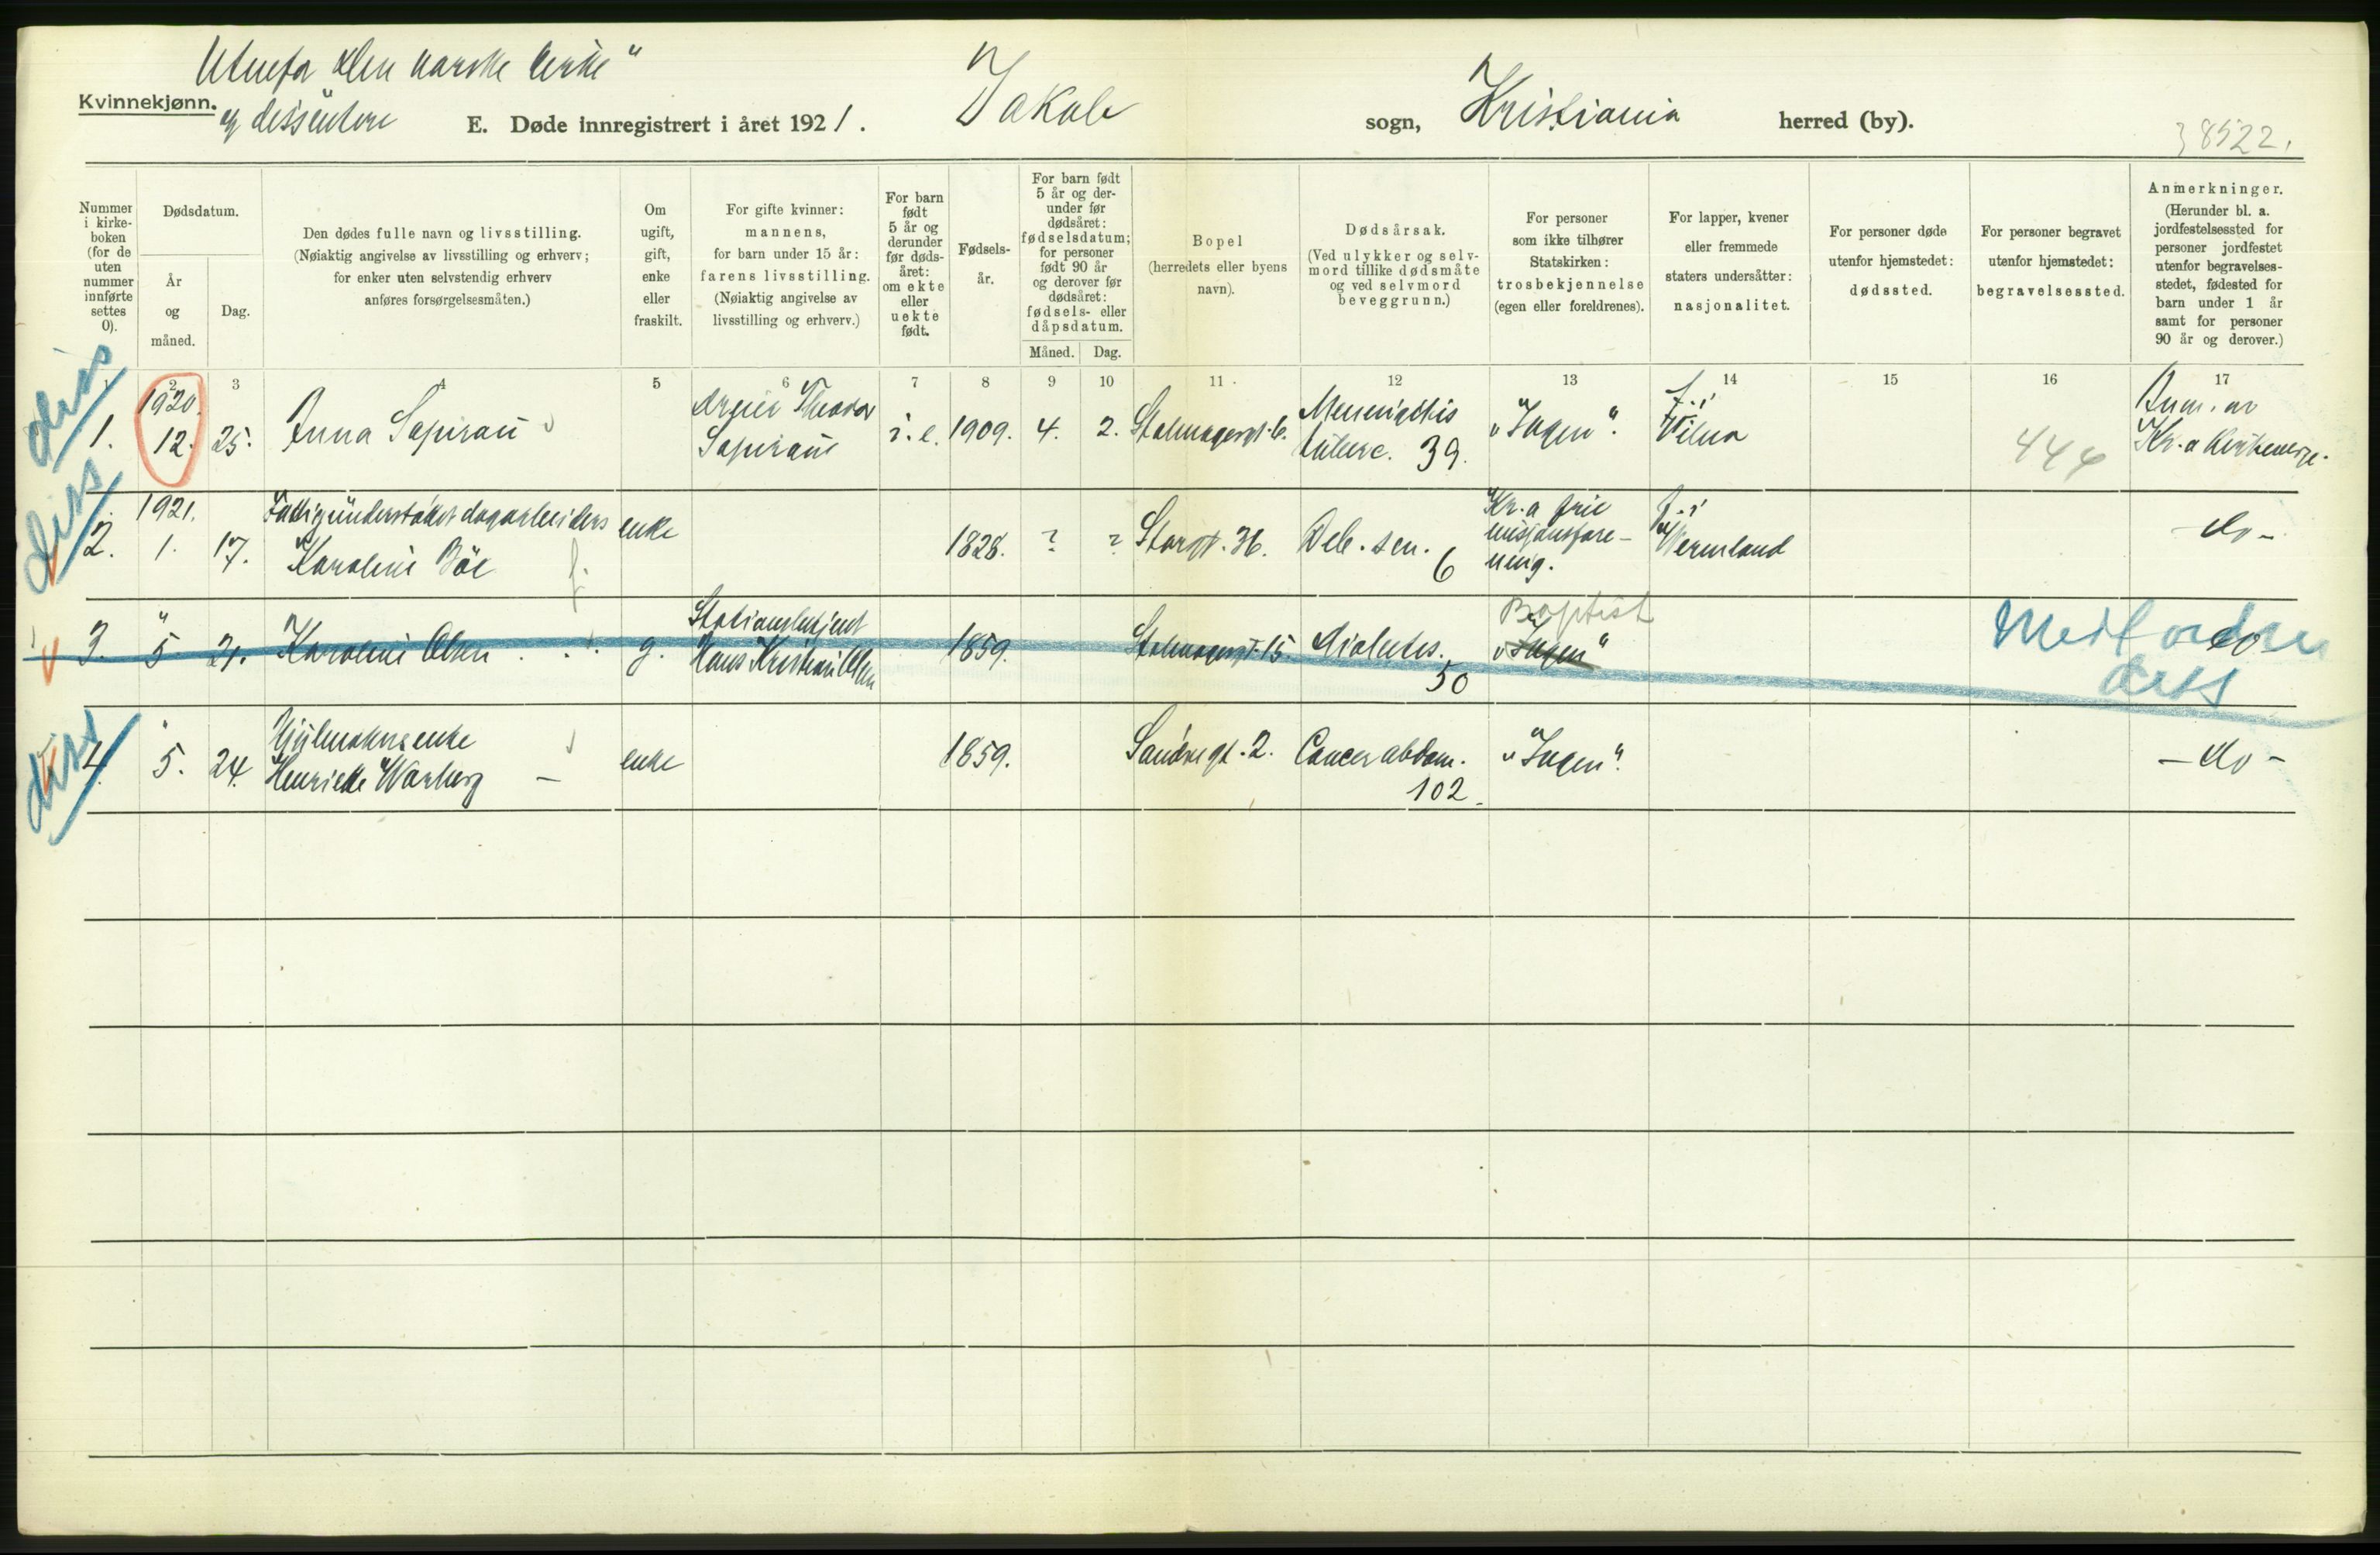 Utenfor den norske kirke"
og dissentere
Kvinnekjønn.
E. Døde innregistrert i året 1921.
Jakob
sogn,
Kristiania
herred (by).
38522.
Nummer
i kirke-
boken
(for de
uten
nummer
innførte
settes
0).
Dødsdatum.
År
og
måned.
Dag.
Den dødes fulle navn og livsstilling.
(Nøiaktig angivelse av livsstilling og erhverv;
for enker uten selvstendig erhverv
anføres forsørgelsesmåten.)
Om
ugift,
gift,
enke
eller
fraskilt.
For gifte kvinner:
mannens,
for barn under 15 år:
farens livsstilling.
(Nøiaktig angivelse av
livsstilling og erhverv.)
For barn
født
5 år og
derunder
før døds-
året:
om ekte
eller
uekte
født.
Fødsels-
år.
For barn født
5 år og der-
under før
dødsåret:
fødselsdatum;
for personer
født 90 år
og derover før
dødsåret:
fødsels- eller
dåpsdatum.
Måned.
Dag.
Bopel
(herredets eller byens
navn).
Dødsårsak.
(Ved ulykker og selv-
mord tillike dødsmåte
og ved selvmord
beveggrunn.)
For personer
som ikke tilhører
Statskirken:
trosbekjennelse
(egen eller foreldrenes).
For lapper, kvener
eller fremmede
staters undersåtter:
nasjonalitet.
For personer døde
utenfor hjemstedet:
dødssted.
For personer begravet
utenfor hjemstedet:
begravelsessted.
Anmerkninger.
(Herunder bl. a.
jordfestelsessted for
personer jordfestet
utenfor begravelses-
stedet, fødested for
barn under 1 år
samt for personer
90 år og derover.)
1 2 3 4 5 6 7 8 9 10 11 12 13 14 15 16 17
diss
1.
1920.
12.
25.
Anna Sapirau
Theodor
Sapirau
i. e.
1909.
4.
2.
Meningitis
tuberc. 39.
"Ingen".
f. i
Vilna
444
Anm. av
Kr.a Kirkeverge.
diss
2.
1921.
1.
17.
Fattigunderstøttet dagarbeiders
Karoline Böe
f.
enke
1828.
?
?
Storgt. 36.
Deb. sen.
6
Kr.a frie
misjonsfore-
ning.
f. i
Wermland
- do -
3.
"
5
21.
Karoline Olsen
g.
Stationsbetjent
Hans Kristian Olsen
1859.
Diabetes.
50
Baptist
"Ingen"
do
Medf. ordre
diss
diss
4.
"
5.
24.
Hjulmakersenke
Henriette Warberg
enke
1859.
Cancer abdom.
102.
"Ingen".
- do -